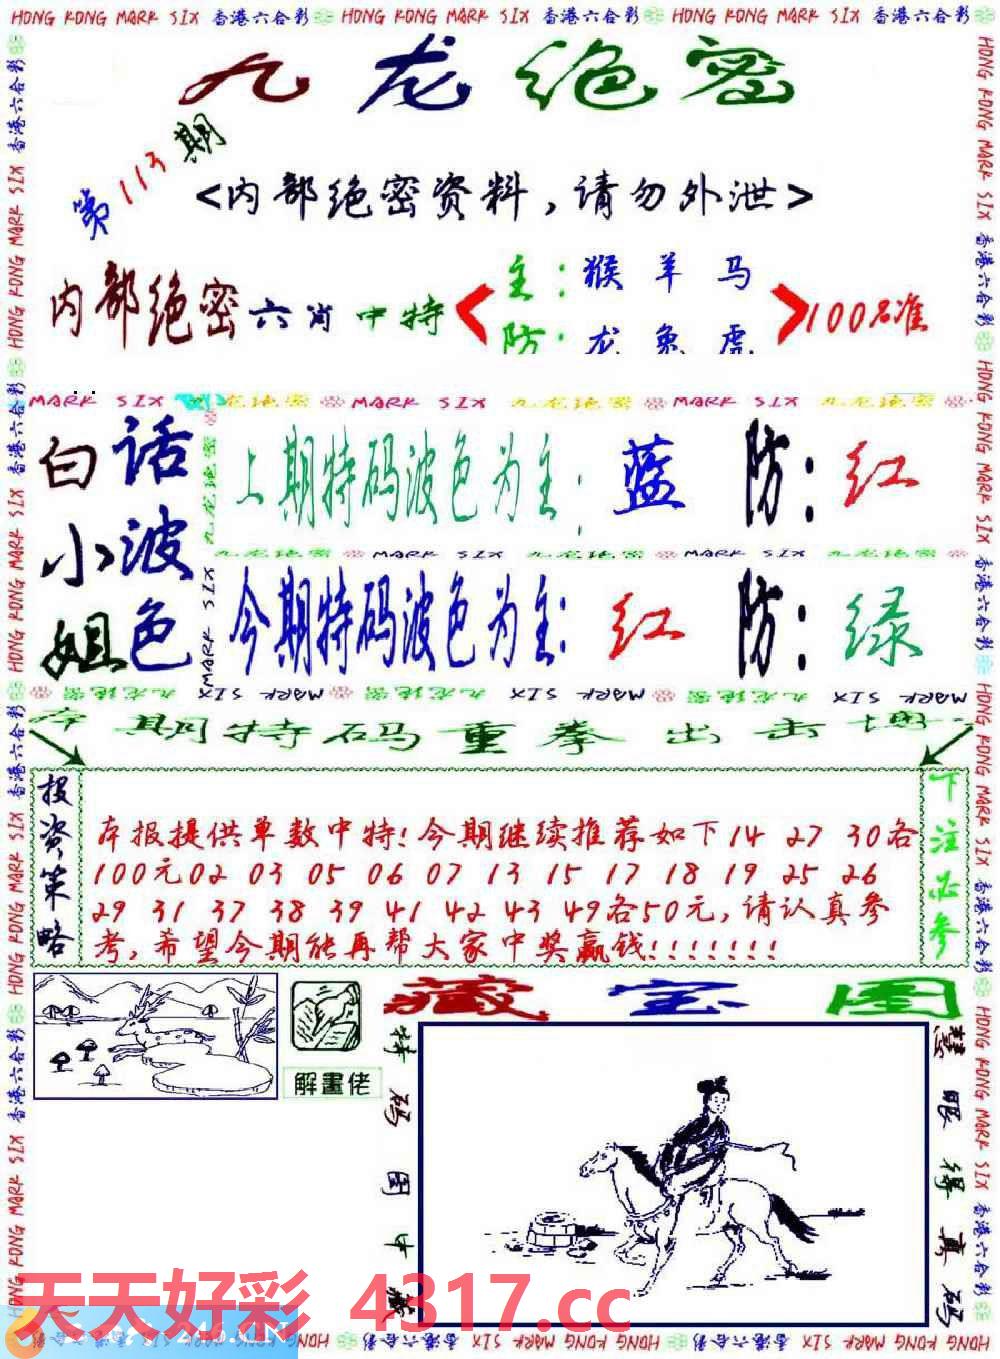 HONG KONG MARK SIX 香港六合彩 HONG KONG MARK SIX 香港六合彩 HONG KONG MARK SIX 香港六合彩
九龙绝密
第113期
<内部绝密资料,请勿外泄>
内部绝密六肖中特
主:猴羊马
防:龙兔虎
100%准
MARK SIX 九龙绝密 MARK SIX 九龙绝密 MARK SIX 九龙绝密
白小姐
话波色
上期特码波色为主:蓝 防:红
九龙绝密 MARK SIX 九龙绝密 MARK SIX 九龙绝密
今期特码波色为主:红 防:绿
本期特码重拳出击
投资策略
本报提供单数中特!今期继续推荐如下14 27 30各
100元02 03 05 06 07 13 15 17 18 19 25 26
29 31 37 38 39 41 42 43 49各50元,请认真参
考,希望今期能再帮大家中奖赢钱!!!!!!!
下注必参
藏宝图
解畫佬
特码图中藏
慧眼得真码
天天好彩 4317.cc